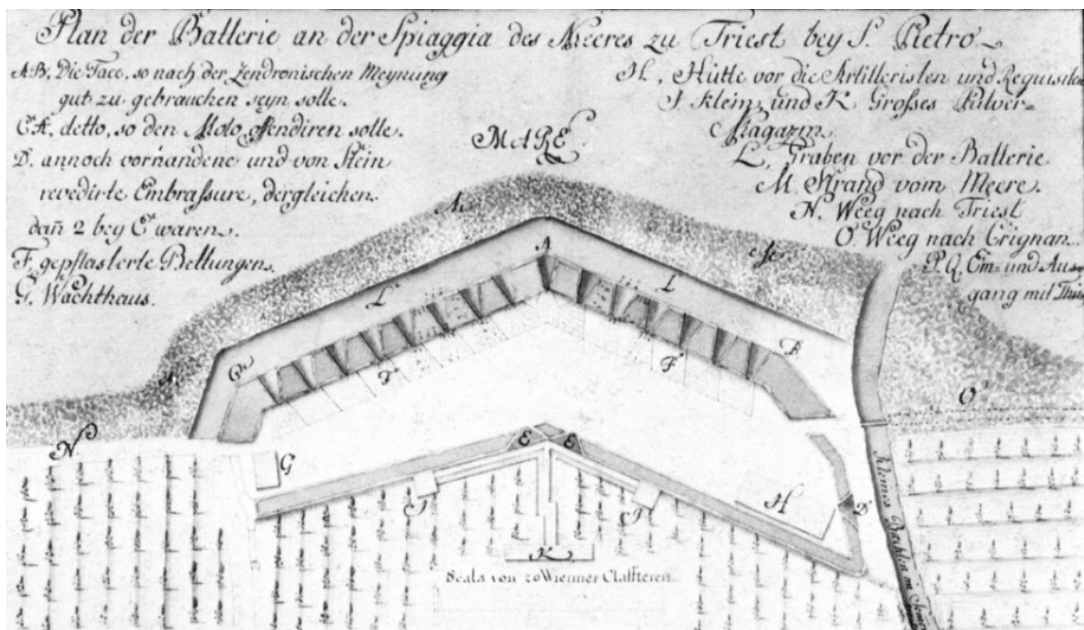 Plan der Batterie an der Spiaggia des Meeres zu Triest bey S. Pietro
A B, Die Face, so nach der Zendronischen Meynung
gut zu gebrauchen seyn solle.
C A, detto, so den Molo offendiren solle.
D. annoch vorhandene und von Stein
revedirte Embrassure, dergleichen
dañ 2 bey E waren.
F, gepflasterte Bettungen.
G. Wachthaus.
H, Hütte vor die Artilleristen und Requisiten
J Klein, und K Grosses Pulver=
Magazin
L, Graben vor der Batterie
M. Strand vom Meere.
N. Weeg nach Triest
O. Weeg nach Crignan
P. Q. Ein= und Aus=
gang mit
MARE
A
L
L
C
B
F
F
N
O
G
E
E
J
J
H
D
K
Kleines
Scala von 20 Wienner Clafteren